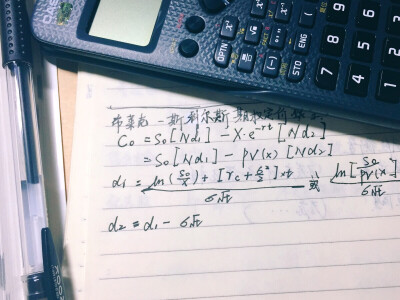 CASIO
x⁻¹
OPTN
ENG
STO
(
)
9
8
7
6
5
4
3
2
1
0
布莱克-斯科尔斯期权定价
C₀ = S₀[Nd₁] - X·e^-rt [Nd₂]
= S₀[Nd₁] - PV(x) [Nd₂]
d₁ = ln(S₀/X) + [rc + σ²/2]×t / σ√t 或 ln[S₀/PV(x)] / σ√t
d₂ = d₁ - σ√t